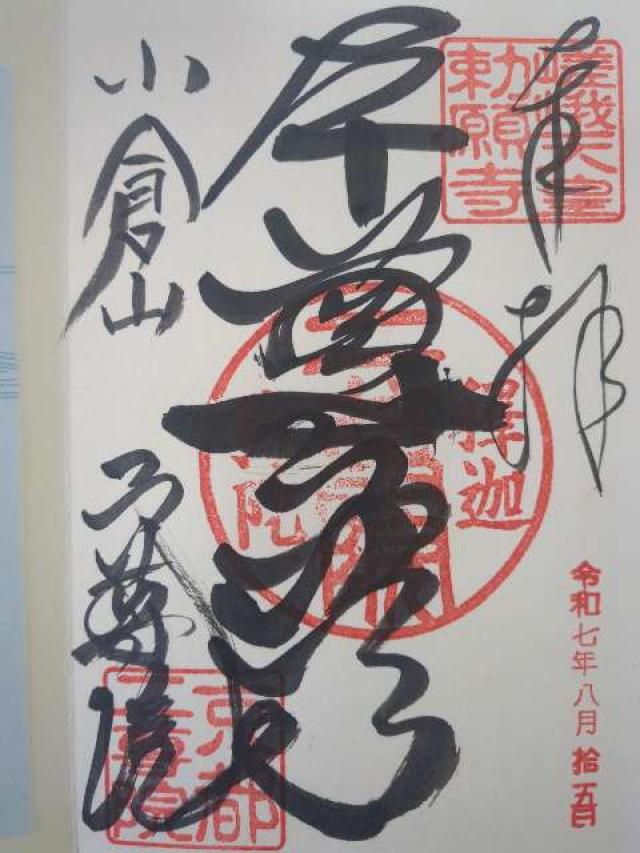 奉拝
嵯峨天皇
勅願寺
令和七年八月拾五日
本尊
釋迦
小倉山
二尊院
京都
二尊院